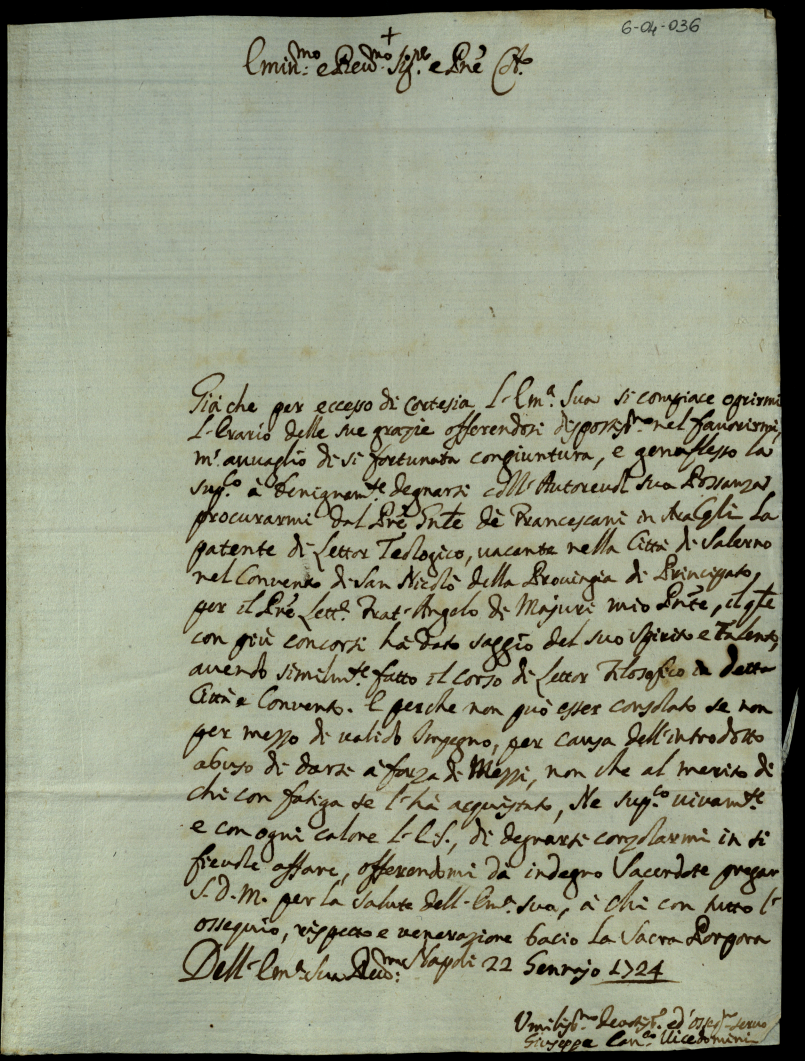 6-04-036
+
Emin.mo e Rev.mo Sig.re e Pñe
Già che per eccesso di cortesia L'Em.a Sua si compiace oprirmi
L'Erario delle sue grazie offerendosi dispostiss.mo nel favorirmi,
m'avvaglio di si fortunata congiuntura, e genuflesso la
sup.co à benignam.te degnarsi coll'Autorevol sua Possanza
procurarmi dal Prẽ Gnĩe dè Francescani in AraCęli la
patente di Lettor Teologico, vacante nella Città di Salerno
nel Convento di San Nicolò della Provinzia di Principato,
per il Prẽ Lett.e Frat'Angelo di Majuri mio Pñte, il qĩe
con più concorsi hà dato saggio del suo spirito e talento,
avendo similm.te fatto il corso di Lettor Filosofico in detta
Città e Convento. E perche non può esser consolato se non
per mezzo di valido Impegno, per causa dell'introdotto
abuso di darsi à forza di Mezzi, non che al merito di
chi con fatiga se l'hà acquistato, Ne sup.co vivam.te
e con ogni calore L'E.S., di degnarsi consolarmi in si
fievole affare, offerendomi dà indegno Sacerdote pregar
S.D.M. per la salute dell'Em.a sua, à chi con tutto l'
ossequio, rispetto e venerazione bacio la Sacra Porpora
Dell'Em.a Sua Rev.ma Napoli 22 Gennajo 1724
Umiliss.mo Devotiss.o ed'osseq.mo servo
Giuseppe Can.co Vicedomini